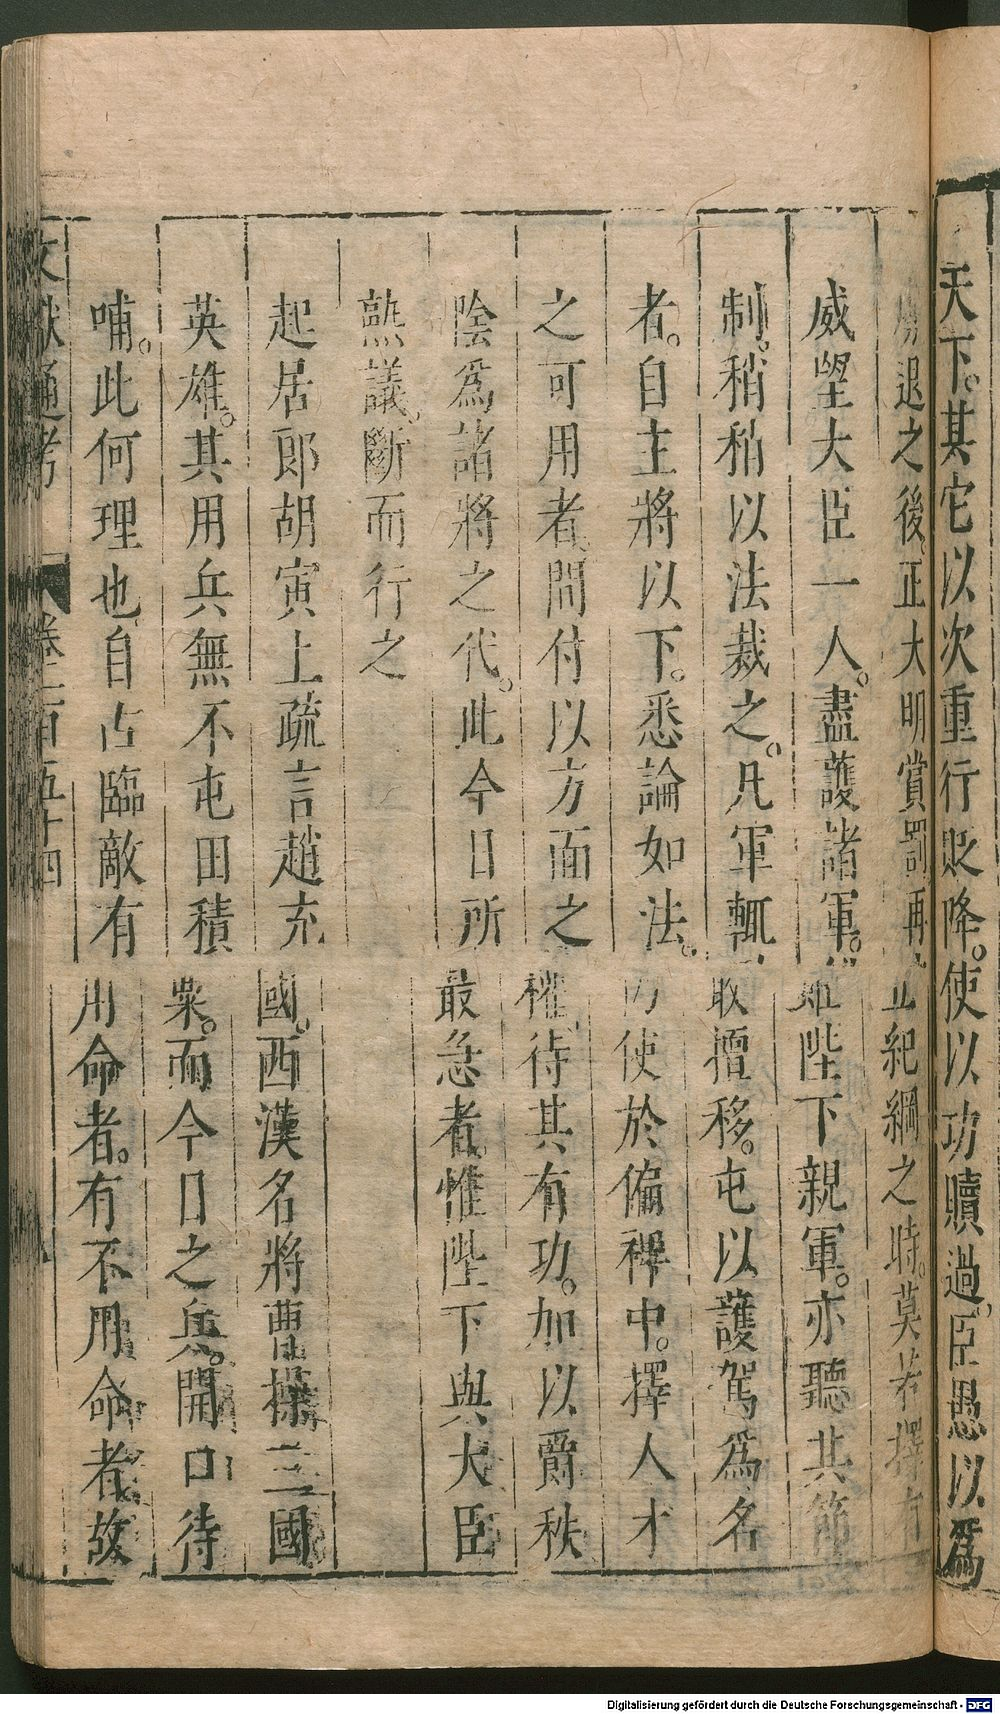 天下。其它以次重行貶降。使以功贖過。臣愚以爲
退之後。正大明賞罰再 紀綱之時。莫若擇有
威望大臣一人。盡護諸軍。雖陛下親軍。亦聽其節
制。稍稍以法裁之。凡軍輒敢擅移。屯以護駕爲名
者。自主將以下。悉論如法。仍使於偏裨中。擇人才
之可用者。間付以方面之權、待其有功。加以爵秩
陰爲諸將之代。此今日所最急者。惟陛下與大臣
熟議。斷而行之
起居郎胡寅上疏言趙充國。西漢名將曹操三國
英雄。其用兵無不屯田積粟。而今日之兵。開口待
哺。此何理也自古臨敵有用命者。有不用命者故
文獻通考 卷一百五十四
Digitalisierung gefördert durch die Deutsche Forschungsgemeinschaft - DFG